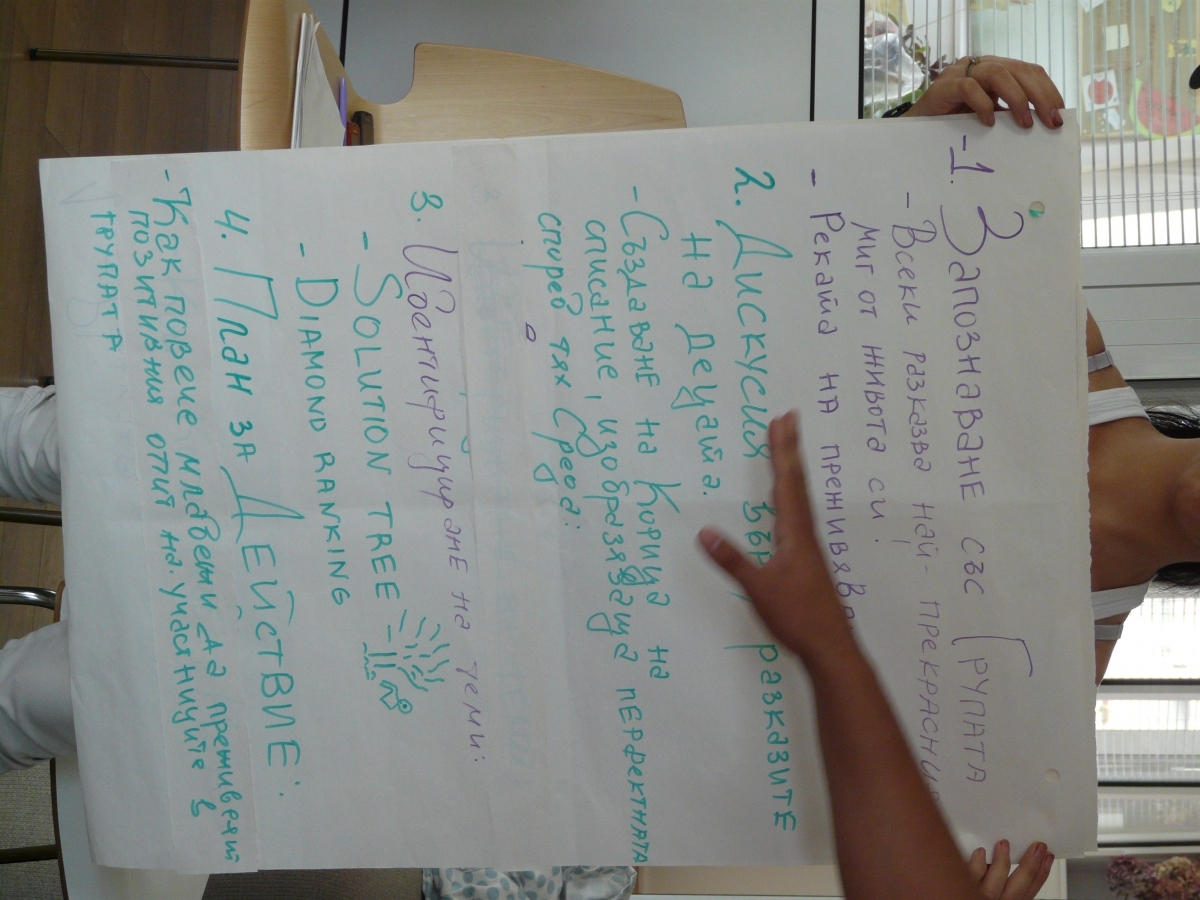 -1. Запознаване със Групата
- Всеки разказва най- прекрасния
миг от живота си!
- Реката на преживява
2. Дискусия върху разказите
на децата.
- Създаване на Корица на
списание, изобразяваща перфектната
според тях Среда:
3. Идентифициране на теми:
- SOLUTION TREE
- DIAMOND RANKING
4. План за Действие:
- Как повече младежи да преживеят
позитивния опит на участниците в
групата